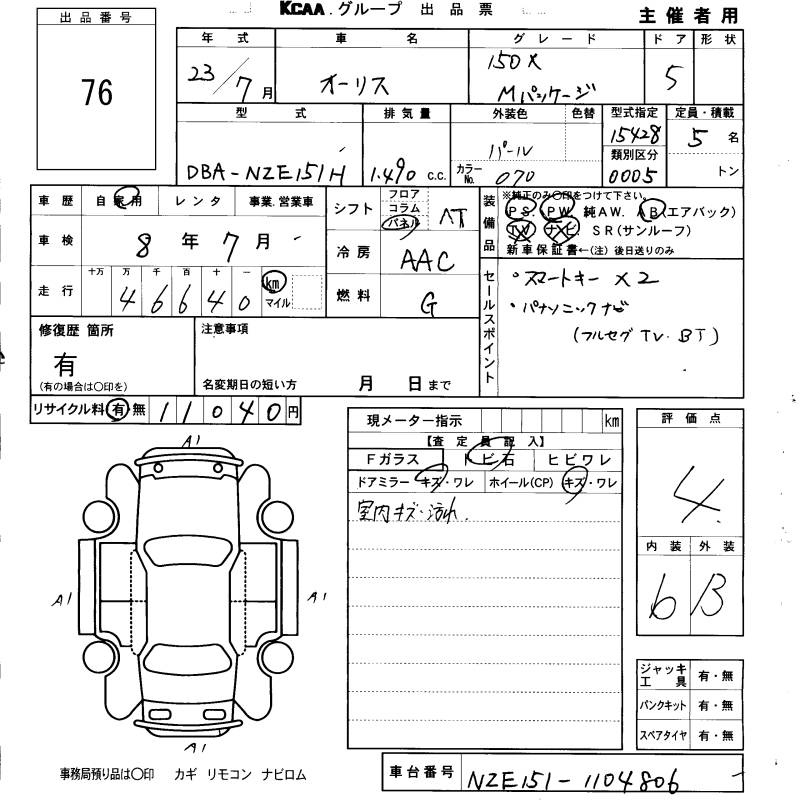 KCAA.グループ 出品票
主催者用
出品番号
76
年式 車名 グレード ドア 形状
23/7月 オーリス 150X Mパッケージ 5
型式 排気量 外装色 色替 型式指定 定員・積載
DBA-NZE151H 1.490 c.c. パール カラーNo. 070 15428 5名
類別区分 0005 トン
車歴 自家用 レンタ 事業.営業車
車検 8年7月
十万 万 千 百 十 一
走行 46640 km マイル
シフト フロア コラム パネル AT
冷房 AAC
燃料 G
装備品 ※純正のみ○印をつけて下さい。
PS. PW. 純AW. AB(エアバック)
TV ナビ SR(サンルーフ)
新車保証書←(注) 後日送りのみ
セールスポイント
・スマートキー X2
・パナソニックナビ
(フルセグTV.BT)
修復歴 箇所
有
(有の場合は○印を)
注意事項
名変期日の短い方 月 日まで
リサイクル料 有 無 11040円
現メーター指示 km
【査定員記入】
Fガラス トビ石 ヒビワレ
ドアミラー キズ・ワレ ホイール(CP) キズ・ワレ
室内キズ・汚れ.
評価点
4
内装 外装
6 B
A1
A1 A1
A1
ジャッキ工具 有・無
パンクキット 有・無
スペアタイヤ 有・無
事務局預り品は○印 カギ リモコン ナビロム
車台番号 NZE151-1104806